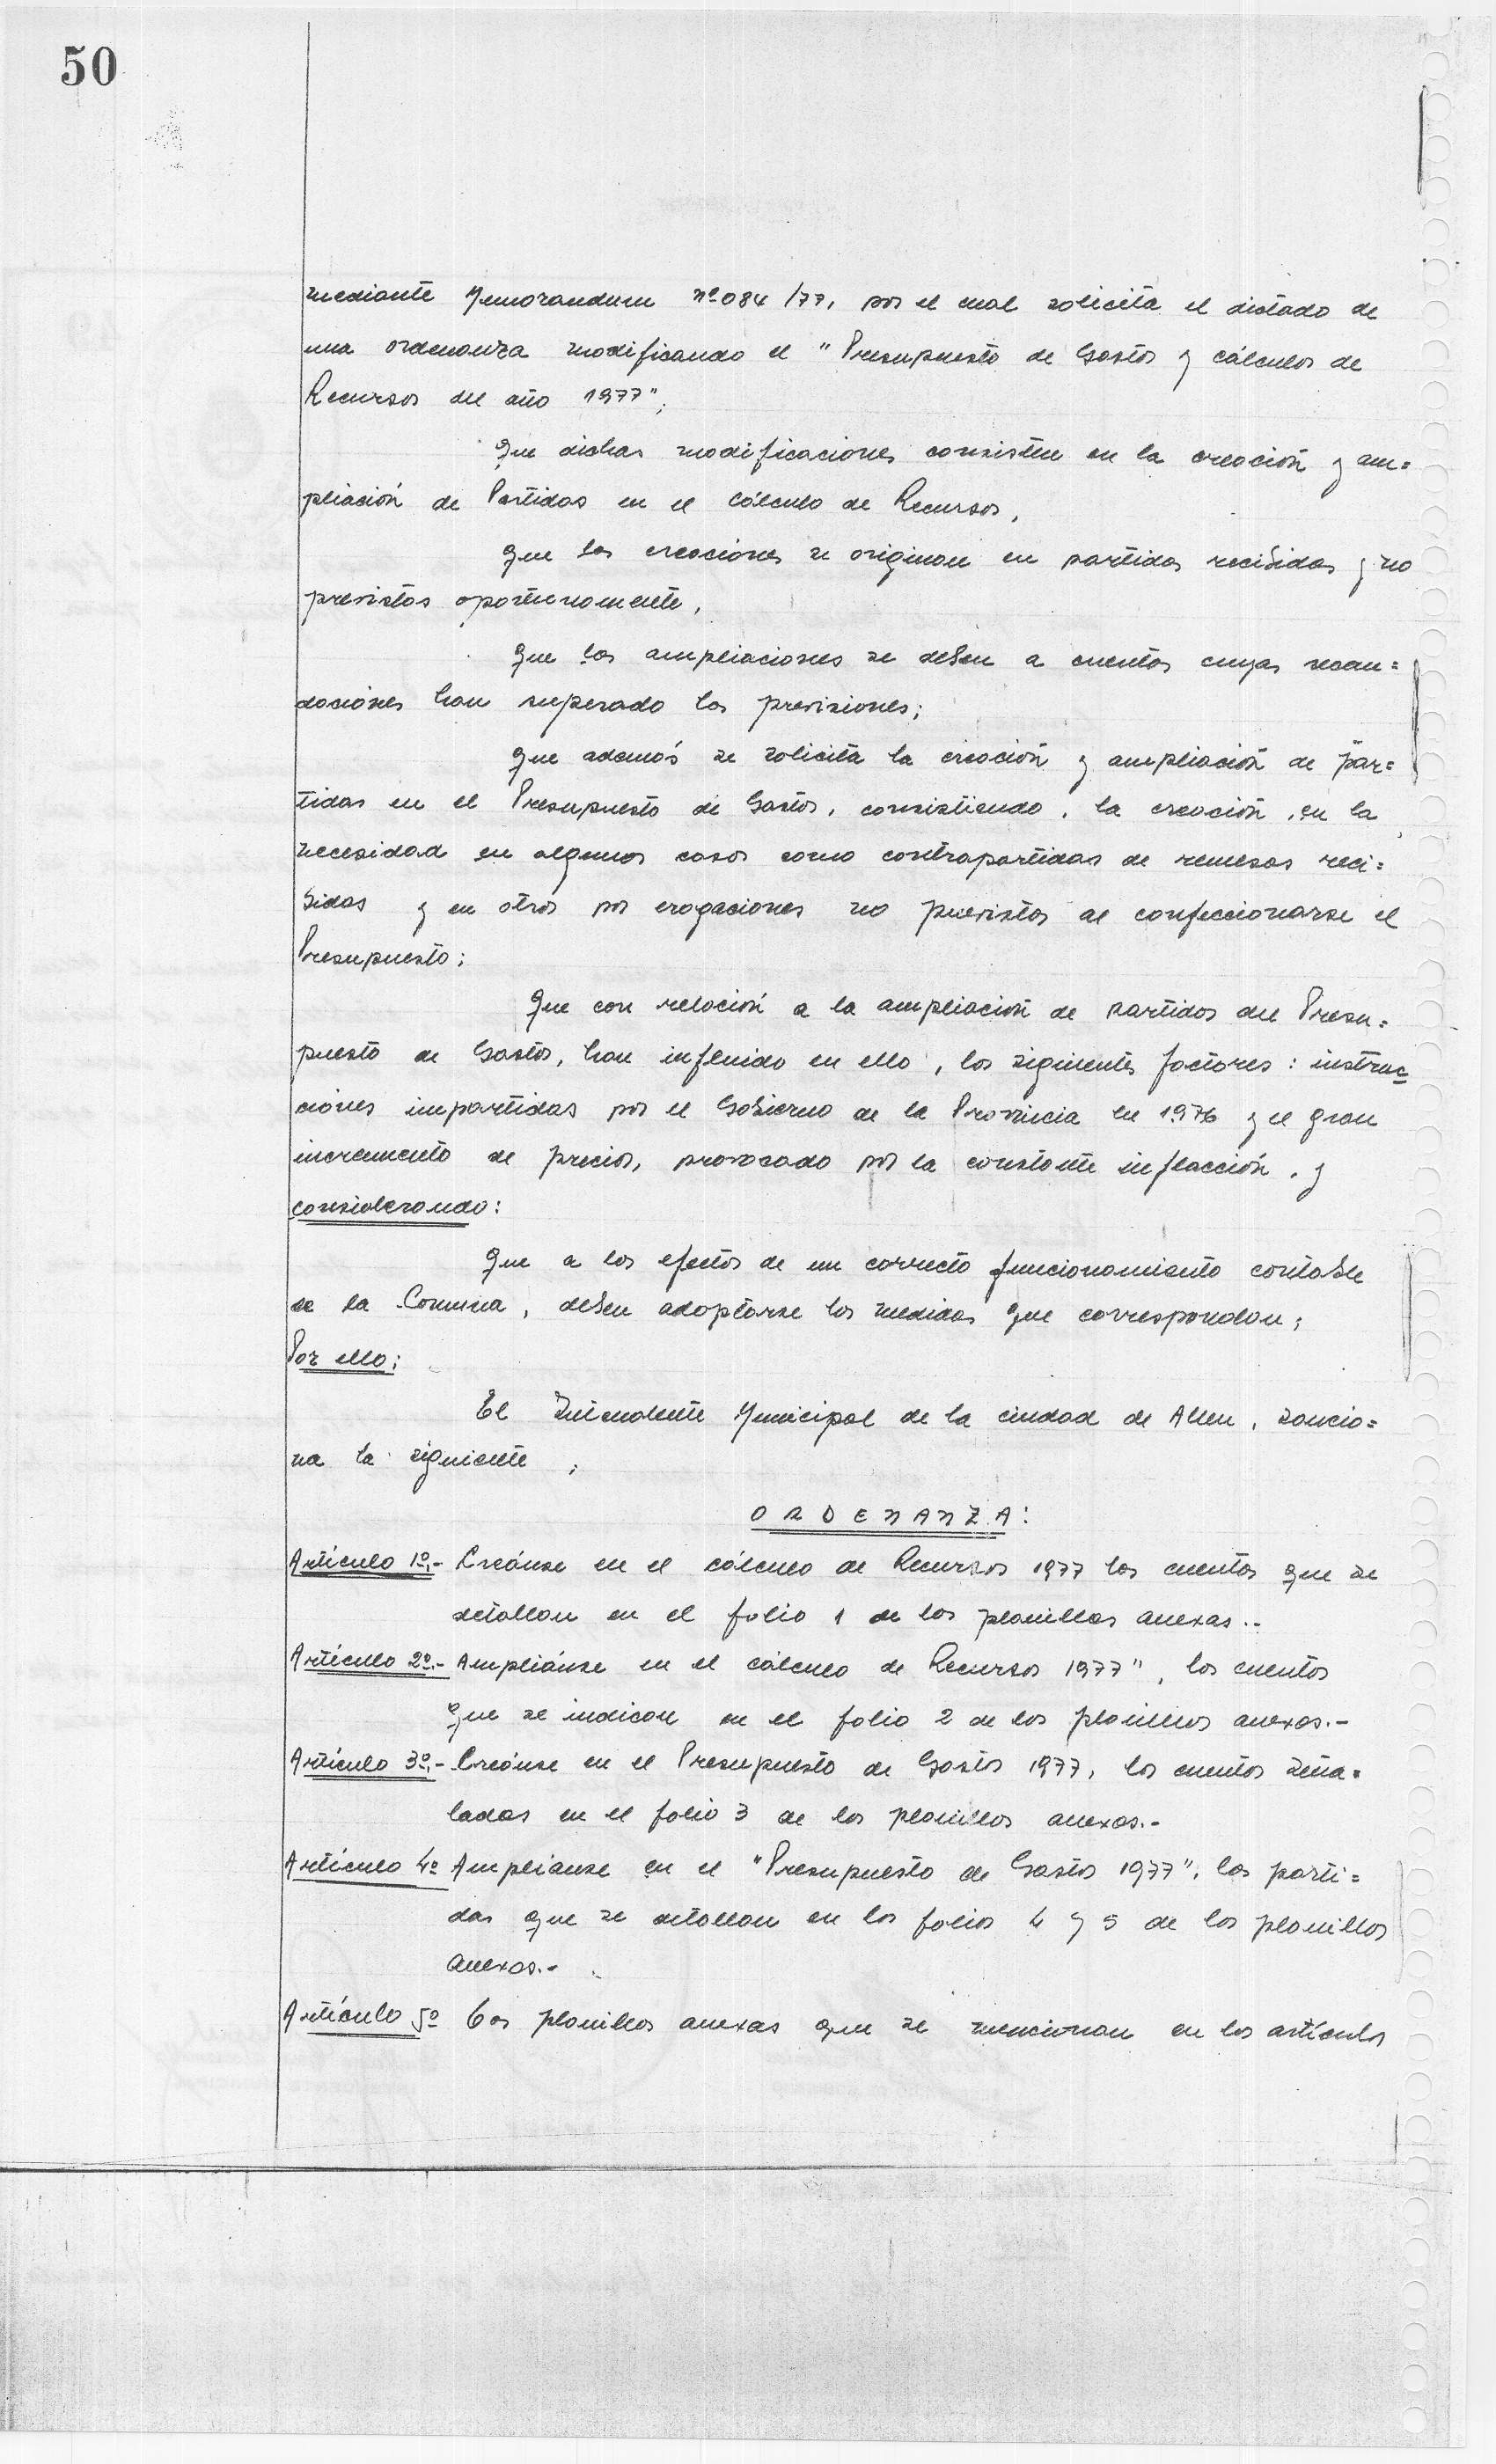 50
mediante Memorandum nº 084/77, por el cual solicita el dictado de
una ordenanza modificando el "Presupuesto de Gastos y cálculos de
Recursos del año 1977";
Que dichas modificaciones consisten en la creación y am=
pliación de Partidas en el Cálculo de Recursos,
Que las creaciones se originan en partidas recibidas y no
previstas oportunamente,
Que las ampliaciones se deben a cuentas cuyas recau=
daciones han superado las previsiones;
Que además se solicita la creación y ampliación de par=
tidas en el Presupuesto de Gastos, consistiendo, la creación, en la
necesidad en algunos casos como contrapartidas de remesas reci=
bidas y en otros por erogaciones no previstas al confeccionarse el
Presupuesto;
Que con relación a la ampliación de partidas del Presu=
puesto de Gastos, han influido en ello, los siguientes factores: instruc=
ciones impartidas por el Gobierno de la Provincia en 1976 y el gran
incremento de precios, provocado por la constante inflacción, y
considerando:
Que a los efectos de un correcto funcionamiento contable
de la Comuna, deben adoptarse las medidas que correspondan;
Por ello;
El Intendente Municipal de la ciudad de Allen, sancio=
na la siguiente;
ORDENANZA:
Artículo 1º.- Creánse en el cálculo de Recursos 1977 las cuentas que se
detallan en el folio 1 de las planillas anexas..
Artículo 2º.- Ampliánse en el cálculo de Recursos 1977", las cuentas
que se indican en el folio 2 de las planillas anexas.-
Artículo 3º.- Creánse en el Presupuesto de Gastos 1977, las cuentas seña=
ladas en el folio 3 de las planillas anexas.-
Artículo 4º Amplianse en el "Presupuesto de Gastos 1977", las parti=
das que se detallan en los folios 4 y 5 de las planillas
anexas.-
Artículo 5º Las planillas anexas que se mencionan en los artículos